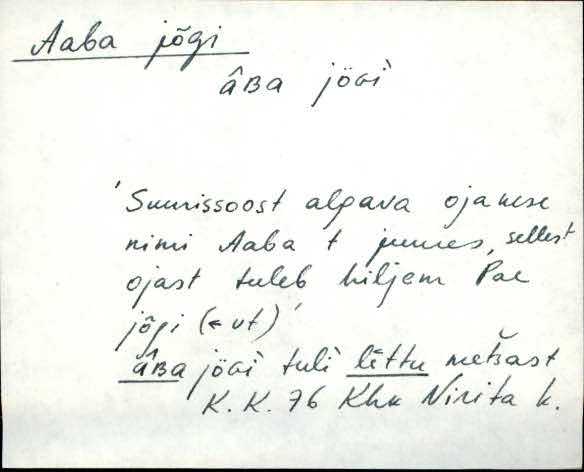 Aaba jõgi
âBa jöGi`
'Suurissoost algava ojakese
nimi Aaba t juures, sellest
ojast tuleb hiljem Pae
jõgi (← vt)'
âBa jöGi` tuli` lèttu metšast
K. K. 76 Khk Ninita k.